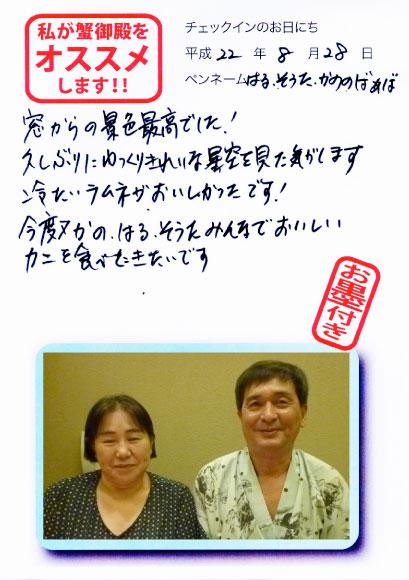 私が蟹御殿を
オススメ
します!!
チェックインのお日にち
平成 22 年 8 月 28 日
ペンネーム はる、そうた、かのの ばぁば
窓からの景色最高でした!
久しぶりにゆっくりきれいな星空を見た気がします
冷たいラムネがおいしかったです!
今度はかの、はる、そうたみんなでおいしい
カニを食べたきたいです
お墨付き